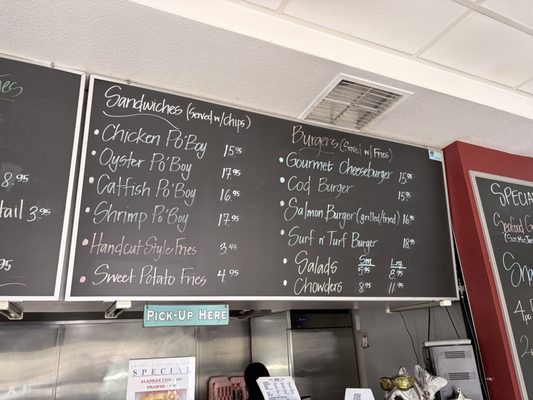 8.95
tail 3.95
5.95
Sandwiches (Served w/chips)
Chicken Po'Boy 15.95
Oyster Po'Boy 17.95
Catfish Po'Boy 16.95
Shrimp Po'Boy 17.95
Handcut Style Fries 3.45
Sweet Potato Fries 4.95
Burgers (Served w/ Fries)
Gourmet Cheeseburger 15.95
Cod Burger 15.95
Salmon Burger (grilled/fried) 16.95
Surf n' Turf Burger 18.95
Sm Lrg
Salads 5.95 8.95
Chowders 8.95 11.95
Special
Seafood
PICK-UP HERE
SPECIAL
ALASKAN COD
PRAWNS